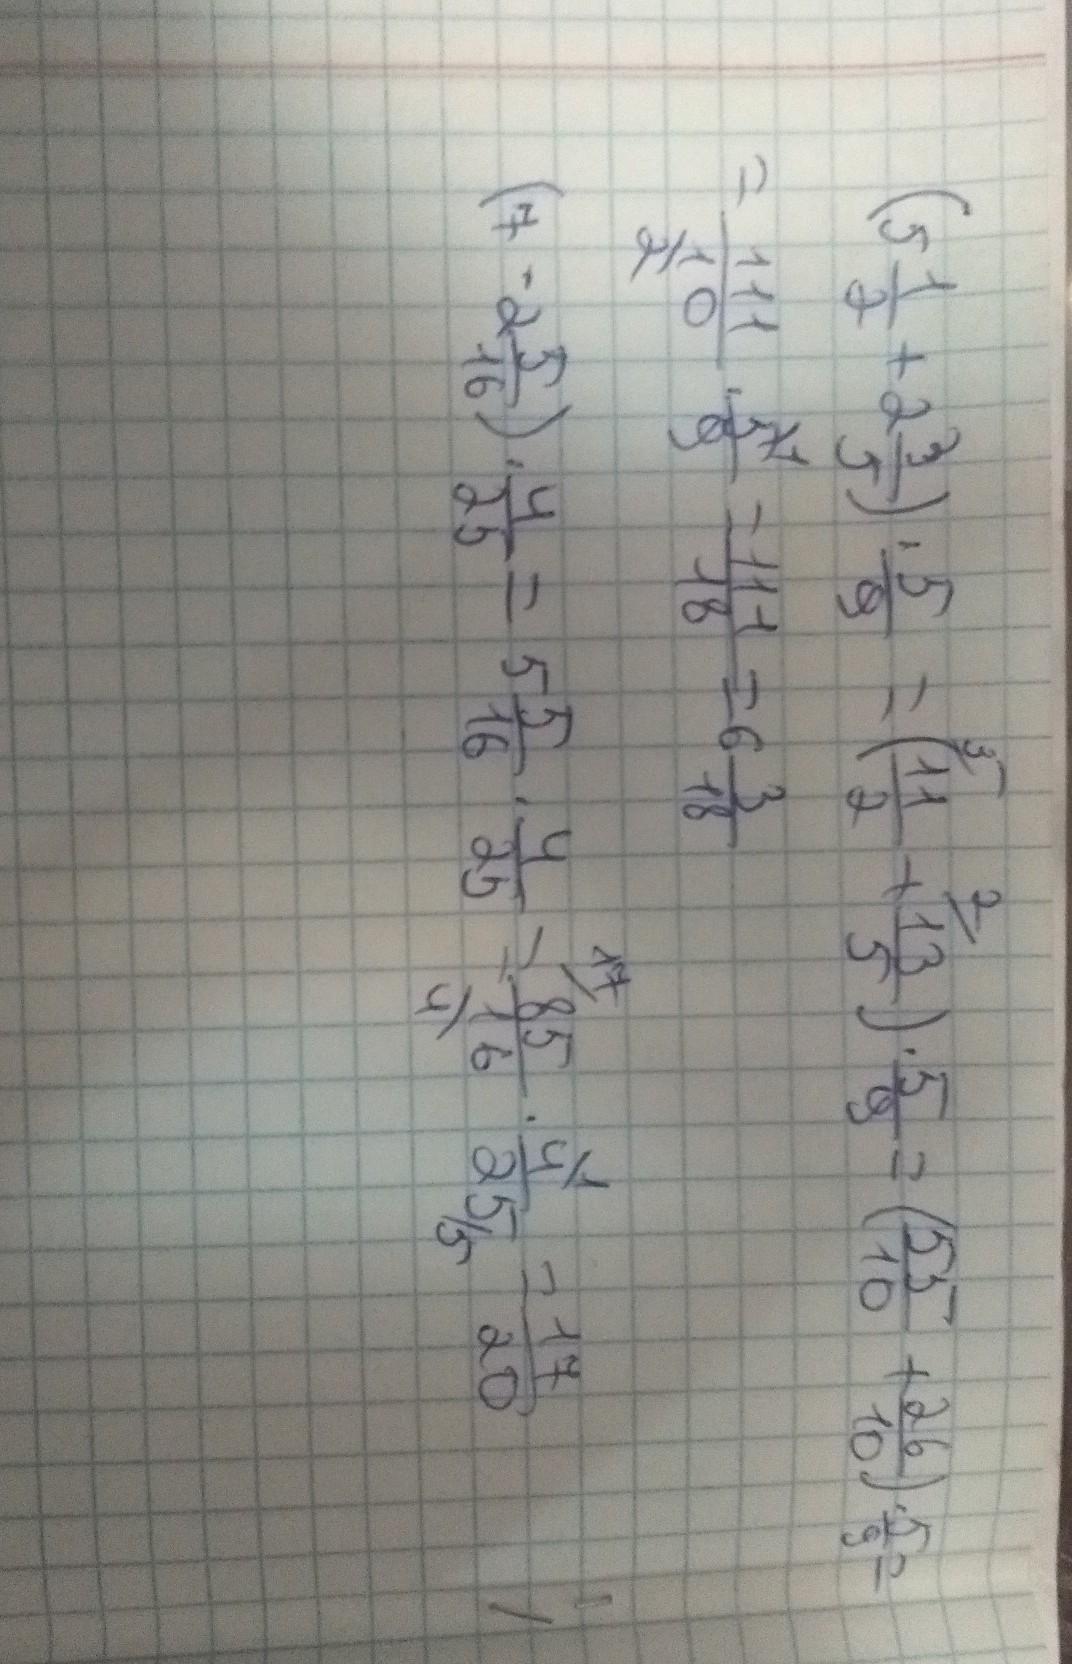 (5 1/2 + 2 3/5) · 5/9 = (11/2 + 13/5) · 5/9 = (55/10 + 26/10) · 5/9 =
= 111/10 · 5/9 = 111/18 = 6 3/18
(7 - 2 5/16) · 4/25 = 5 5/16 · 4/25 = 85/16 · 4/25 = 17/20